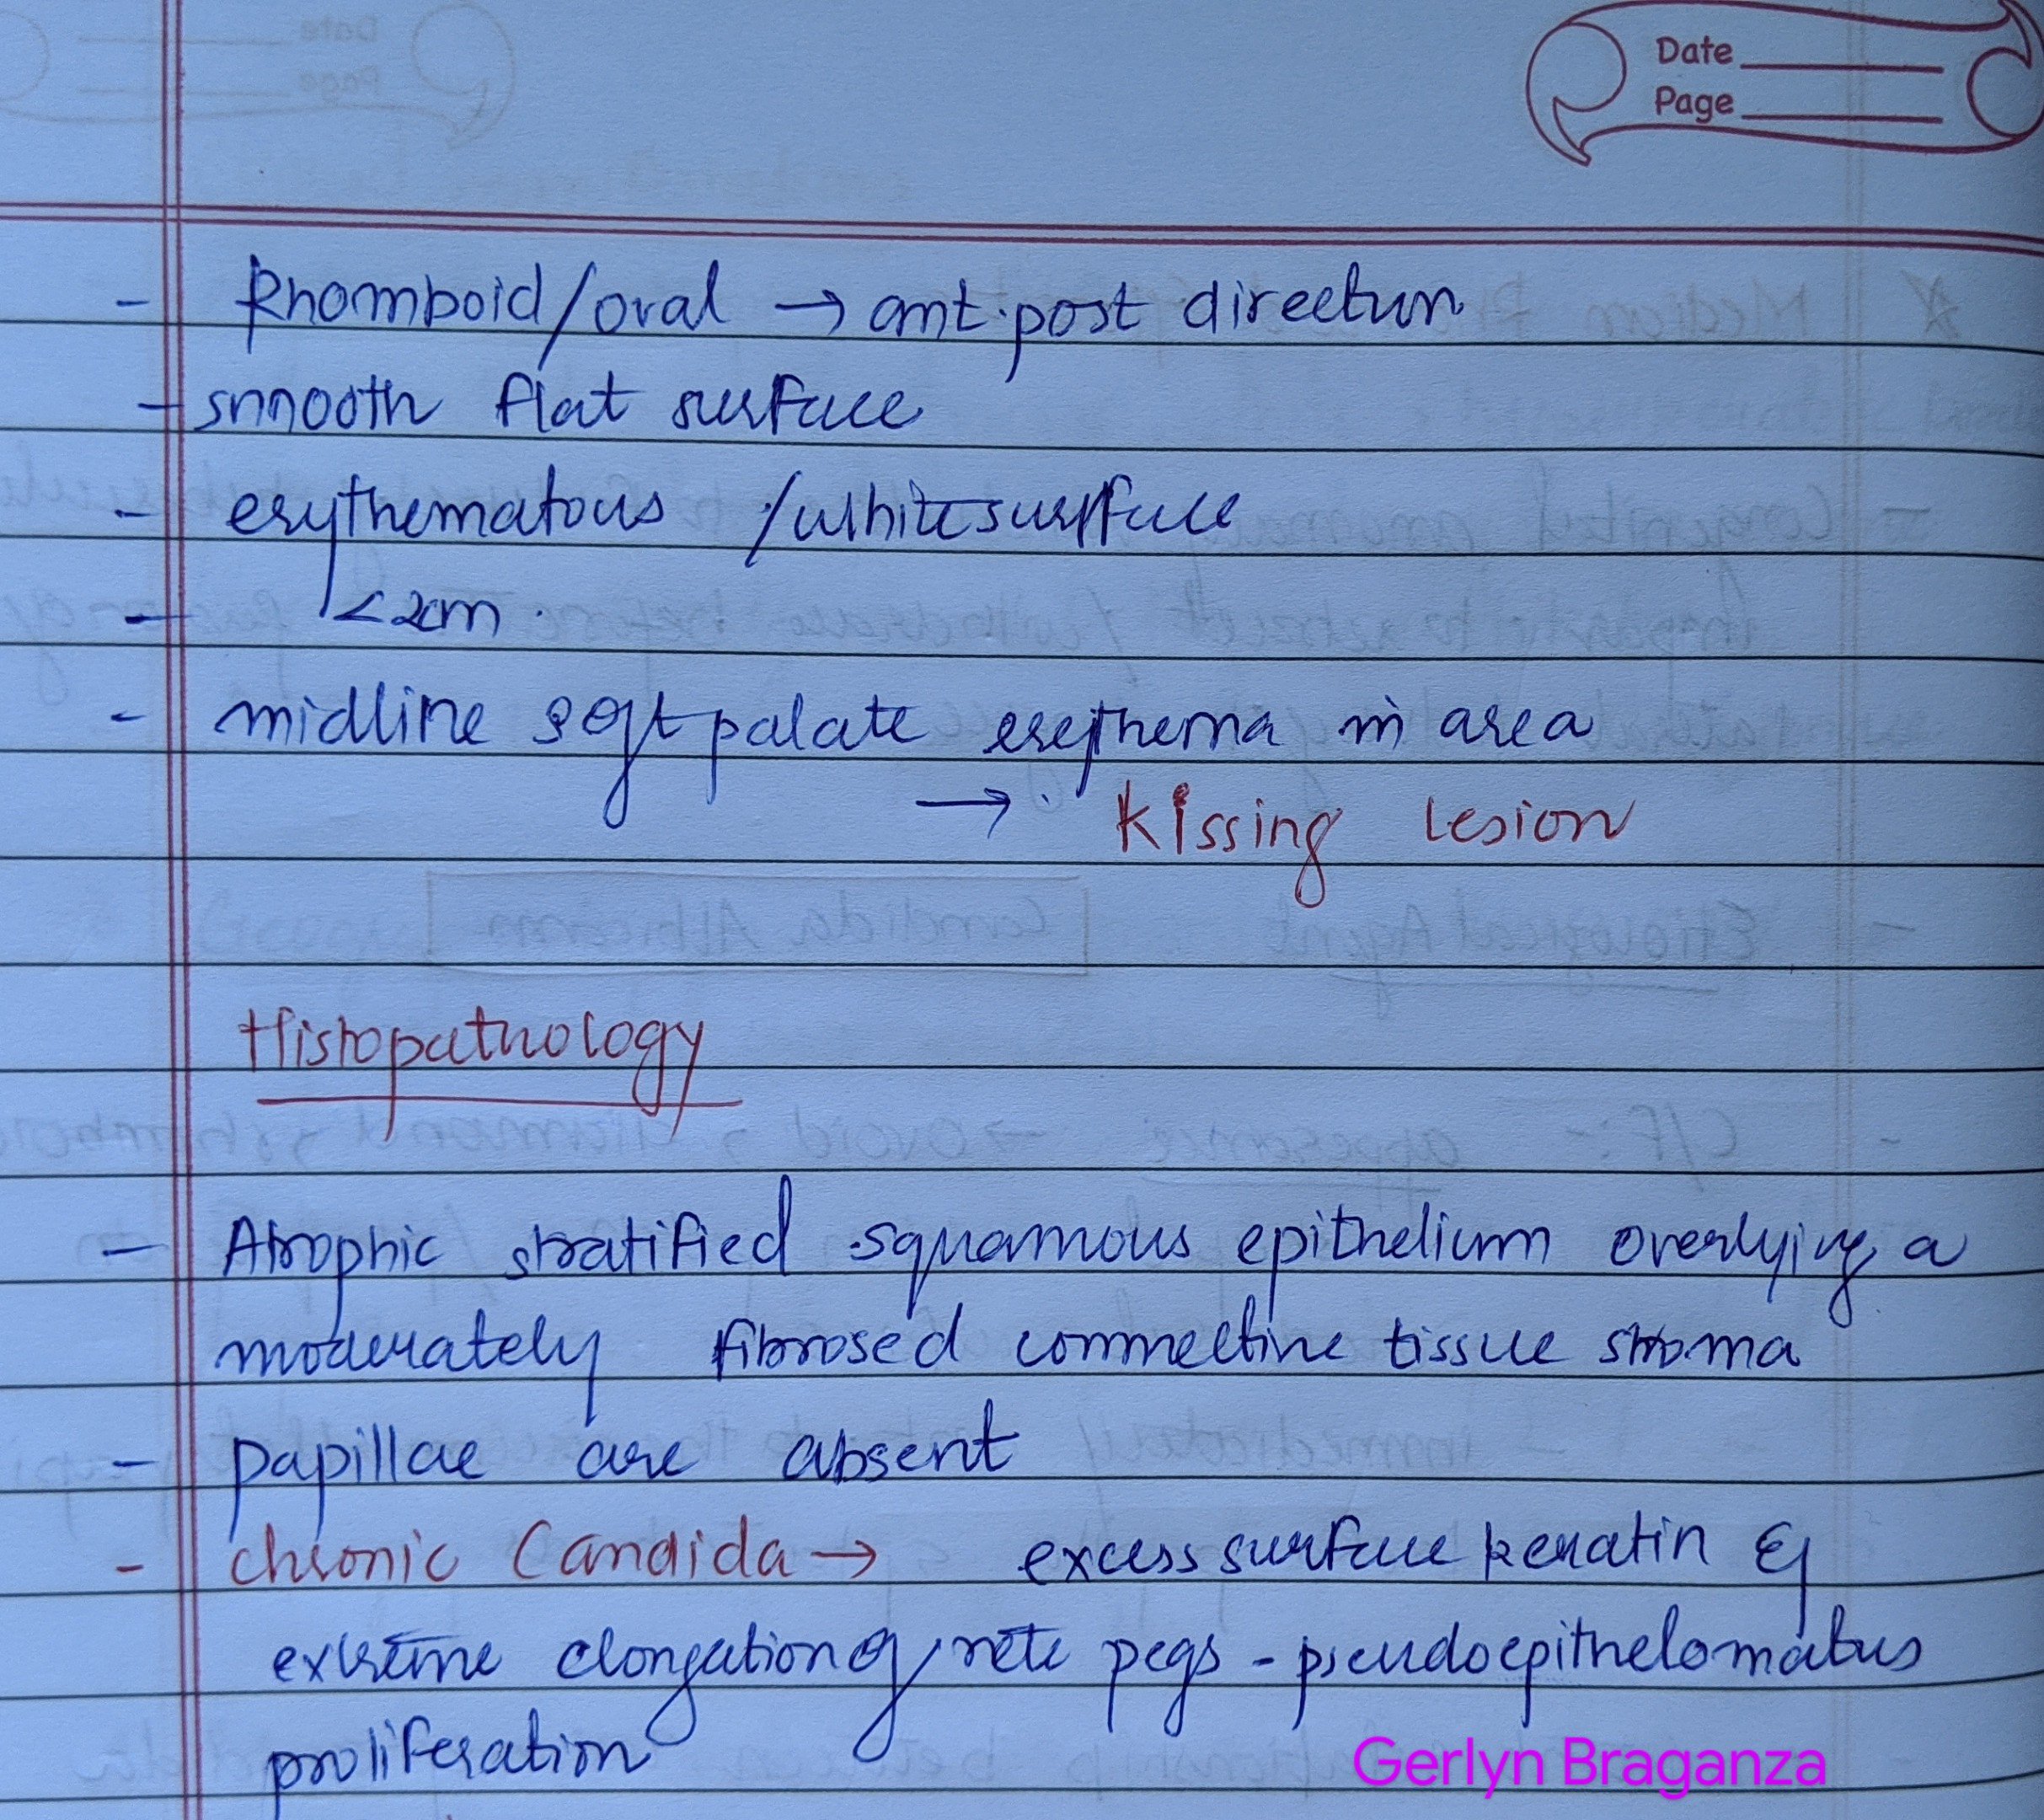 Date
Page
- Rhomboid/oval → ant.post direction
- smooth flat surface
- erythematous /white surface
- <2cm.
- midline soft palate erethema in area
→ Kissing lesion
Histopathology
- Atrophic stratified squamous epithelium overlying a
moderately fibrosed connective tissue stroma
- papillae are absent
- chronic Candida → excess surface keratin &
extreme elongation of rete pegs - pseudoepithelomatus
proliferation
Gerlyn Braganza